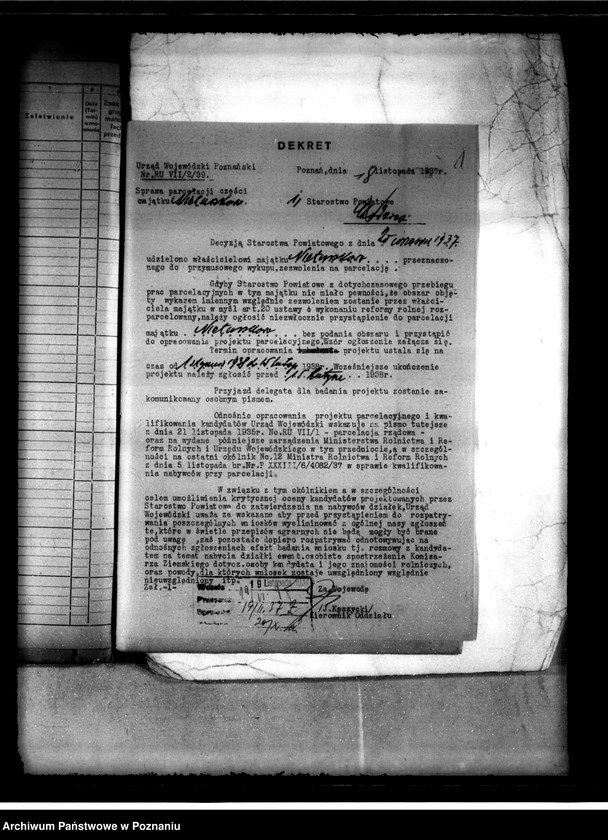 Załatwienie
DEKRET
Urząd Wojewódzki Poznański
Nr.RU VII/2/89.
Poznań,dnia 18 listopada 1937r.
1
Sprawa parcelacji części
majątku
Starostwo Powiatowe
Decyzją Starostwa Powiatowego z dnia 1937.
udzielono właścicielowi majątku . . . . przeznaczo-
nego do przymusowego wykupu,zezwolenia na parcelację .
Gdyby Starostwo Powiatowe z dotychczasowego przebiegu
prac parcelacyjnych w tym majątku nie miało pewności,że obszar obję-
ty wykazem imiennym względnie zezwoleniem zostanie przez właści-
ciela majątku w myśl art.20 ustawy o wykonaniu reformy rolnej roz-
parcelowany,należy ogłosić niezwłocznie przystąpienie do parcelacji
majątku . . . . bez podania obszaru i przystąpić
do opracowania projektu parcelacyjnego.Wzór ogłoszenia załącza się.
Termin opracowania projektu ustala się na
czas od 1938r. Wcześniejsze ukończenie
projektu należy zgłosić przed . . 1938r.
Przyjazd delegata dla badania projektu zostanie za-
komunikowany osobnym pismem.
Odnośnie opracowania projektu parcelacyjnego i kwa-
lifikowania kandydatów Urząd Wojewódzki wskazuje na pismo tutejsze
z dnia 21 listopada 1935r. No.RU VII/1 - parcelacja rządowa -
oraz na wydane późniejsze zarządzenia Ministerstwa Rolnictwa i Re-
form Rolnych i Urzędu Wojewódzkiego w tym przedmiocie,a w szczegól-
ności na ostatni okólnik No.12 Ministra Rolnictwa i Reform Rolnych
z dnia 5 listopada br.Nr.P XXXIII/6/4082/37 w sprawie kwalifikowa-
nia nabywców przy parcelacji.
W związku z tym okólnikiem a w szczególności
celem umożliwienia krytycznej oceny kandydatów projektowanych przez
Starostwo Powiatowe do zatwierdzenia na nabywców działek,Urząd
Wojewódzki uważa za wskazane aby przed przystąpieniem do rozpatry-
wania poszczególnych wniosków wyeliminować z ogólnej masy zgłoszeń
te,które w świetle przepisów agrarnych nie będą mogły być brane
pod uwagę ,zaś pozostałe dopiero rozpatrywać odnotowywując na
odnośnych zgłoszeniach efekt badania wniosku tj. rozmowy z kandyda-
tem na temat nabycia działki ewent.osobiste spostrzeżenia Komisa-
rza Ziemskiego dotycz.osoby kandydata i jego znajomości rolniczych,
oraz powody,dla których wniosek zostaje uwzględniony względnie
nieuwzględniony itp.
Zał.-1-
Za Wojewodę
/S.Koszycki/
Kierownik Oddziału
Archiwum Państwowe w Poznaniu